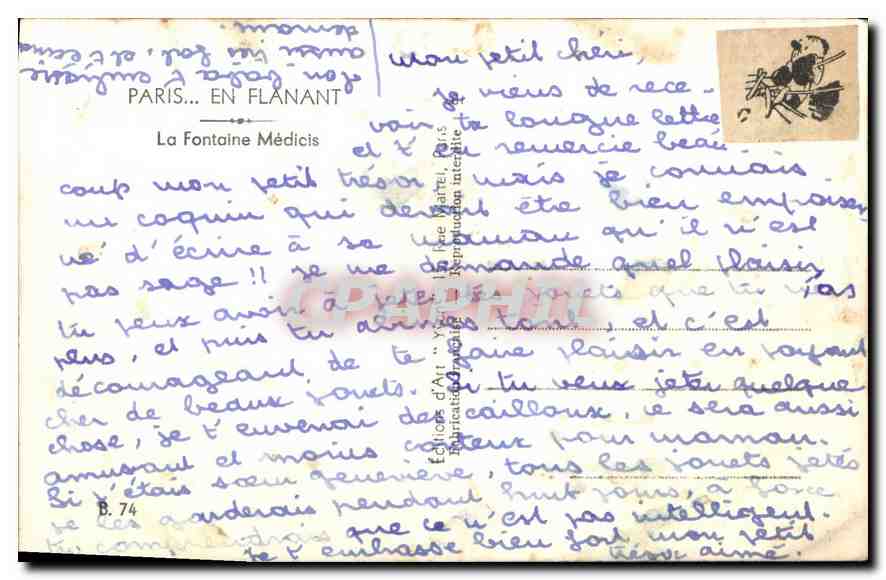 PARIS... EN FLANANT
La Fontaine Médicis
mon petit chéri,
je viens de rece-
voir ta longue lettre
et t'en remercie beau-
coup mon petit trésor, mais je connais
un coquin qui devait être bien empoison
né d'écrire à sa maman qu'il n'est
pas sage!! je me demande quel plaisir
tu peux avoir à jeter tes jouets que tu n'as
plus, et puis tu abîmes tout, et c'est
décourageant de te faire plaisir en payant
cher de beaux jouets. Si tu veux jeter quelque
chose, je t'enverrai des cailloux, ce sera aussi
amusant et moins coûteux pour maman.
Si j'étais sœur geneviève, tous les jouets jetés
je les garderais pendant huit jours, à force
tu comprendrais que ce n'est pas intelligent.
je t'embrasse bien fort mon petit
trésor aimé.
ton papa t'embrasse
aussi très fort, et t'écrira
demain.
B. 74
Editions d'Art "Yvon", Rue Martel, Paris
Fabrication Française Reproduction interdite
CPAPHIL